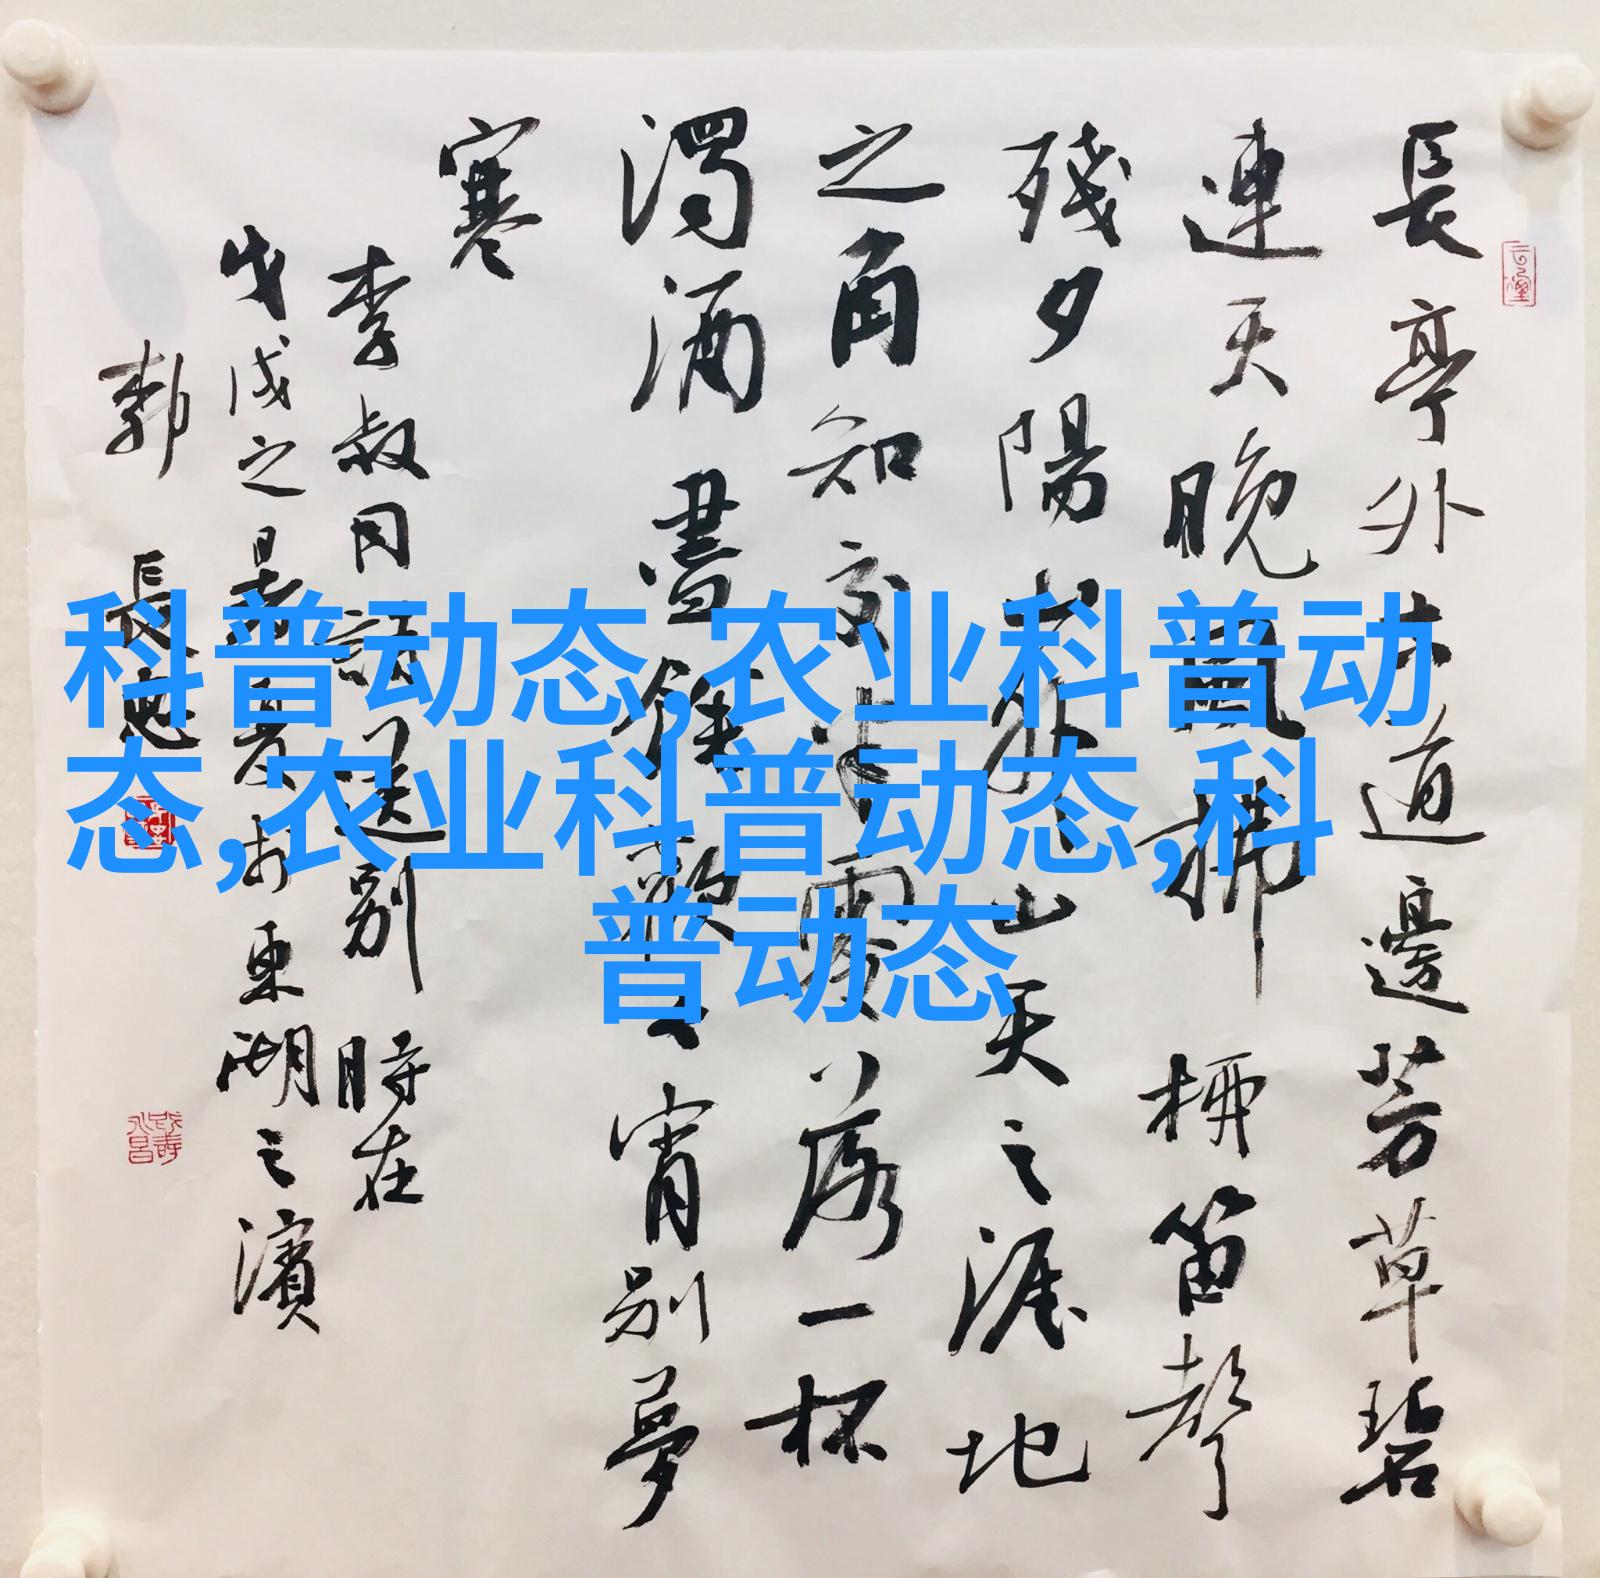 長亭外古道邊芳草碧
連天晚風拂柳笛聲
殘夕陽山外山天之涯地
之角知交半零落一杯
濁酒盡餘歡今宵別夢
寒
李叔同詞送別 時在
戊戌之暑夏於東湖之濱
郭 長忠
科普动态,农业科普动
态,农业科普动态,科
普动态